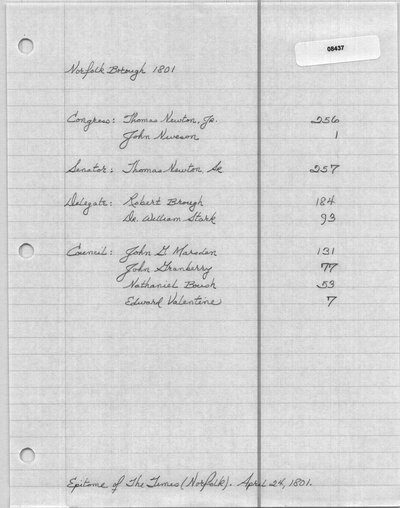 08437
Norfolk Borough 1801
Congress: Thomas Newton, Jr. 256
John Niveson 1
Senator: Thomas Newton, Sr 257
Delegate: Robert Brough 184
Dr. William Stark 93
Council: John G Marsden 131
John Granberry 77
Nathaniel Boush 53
Edward Valentine 7
Epitome of The Times (Norfolk). April 24, 1801.